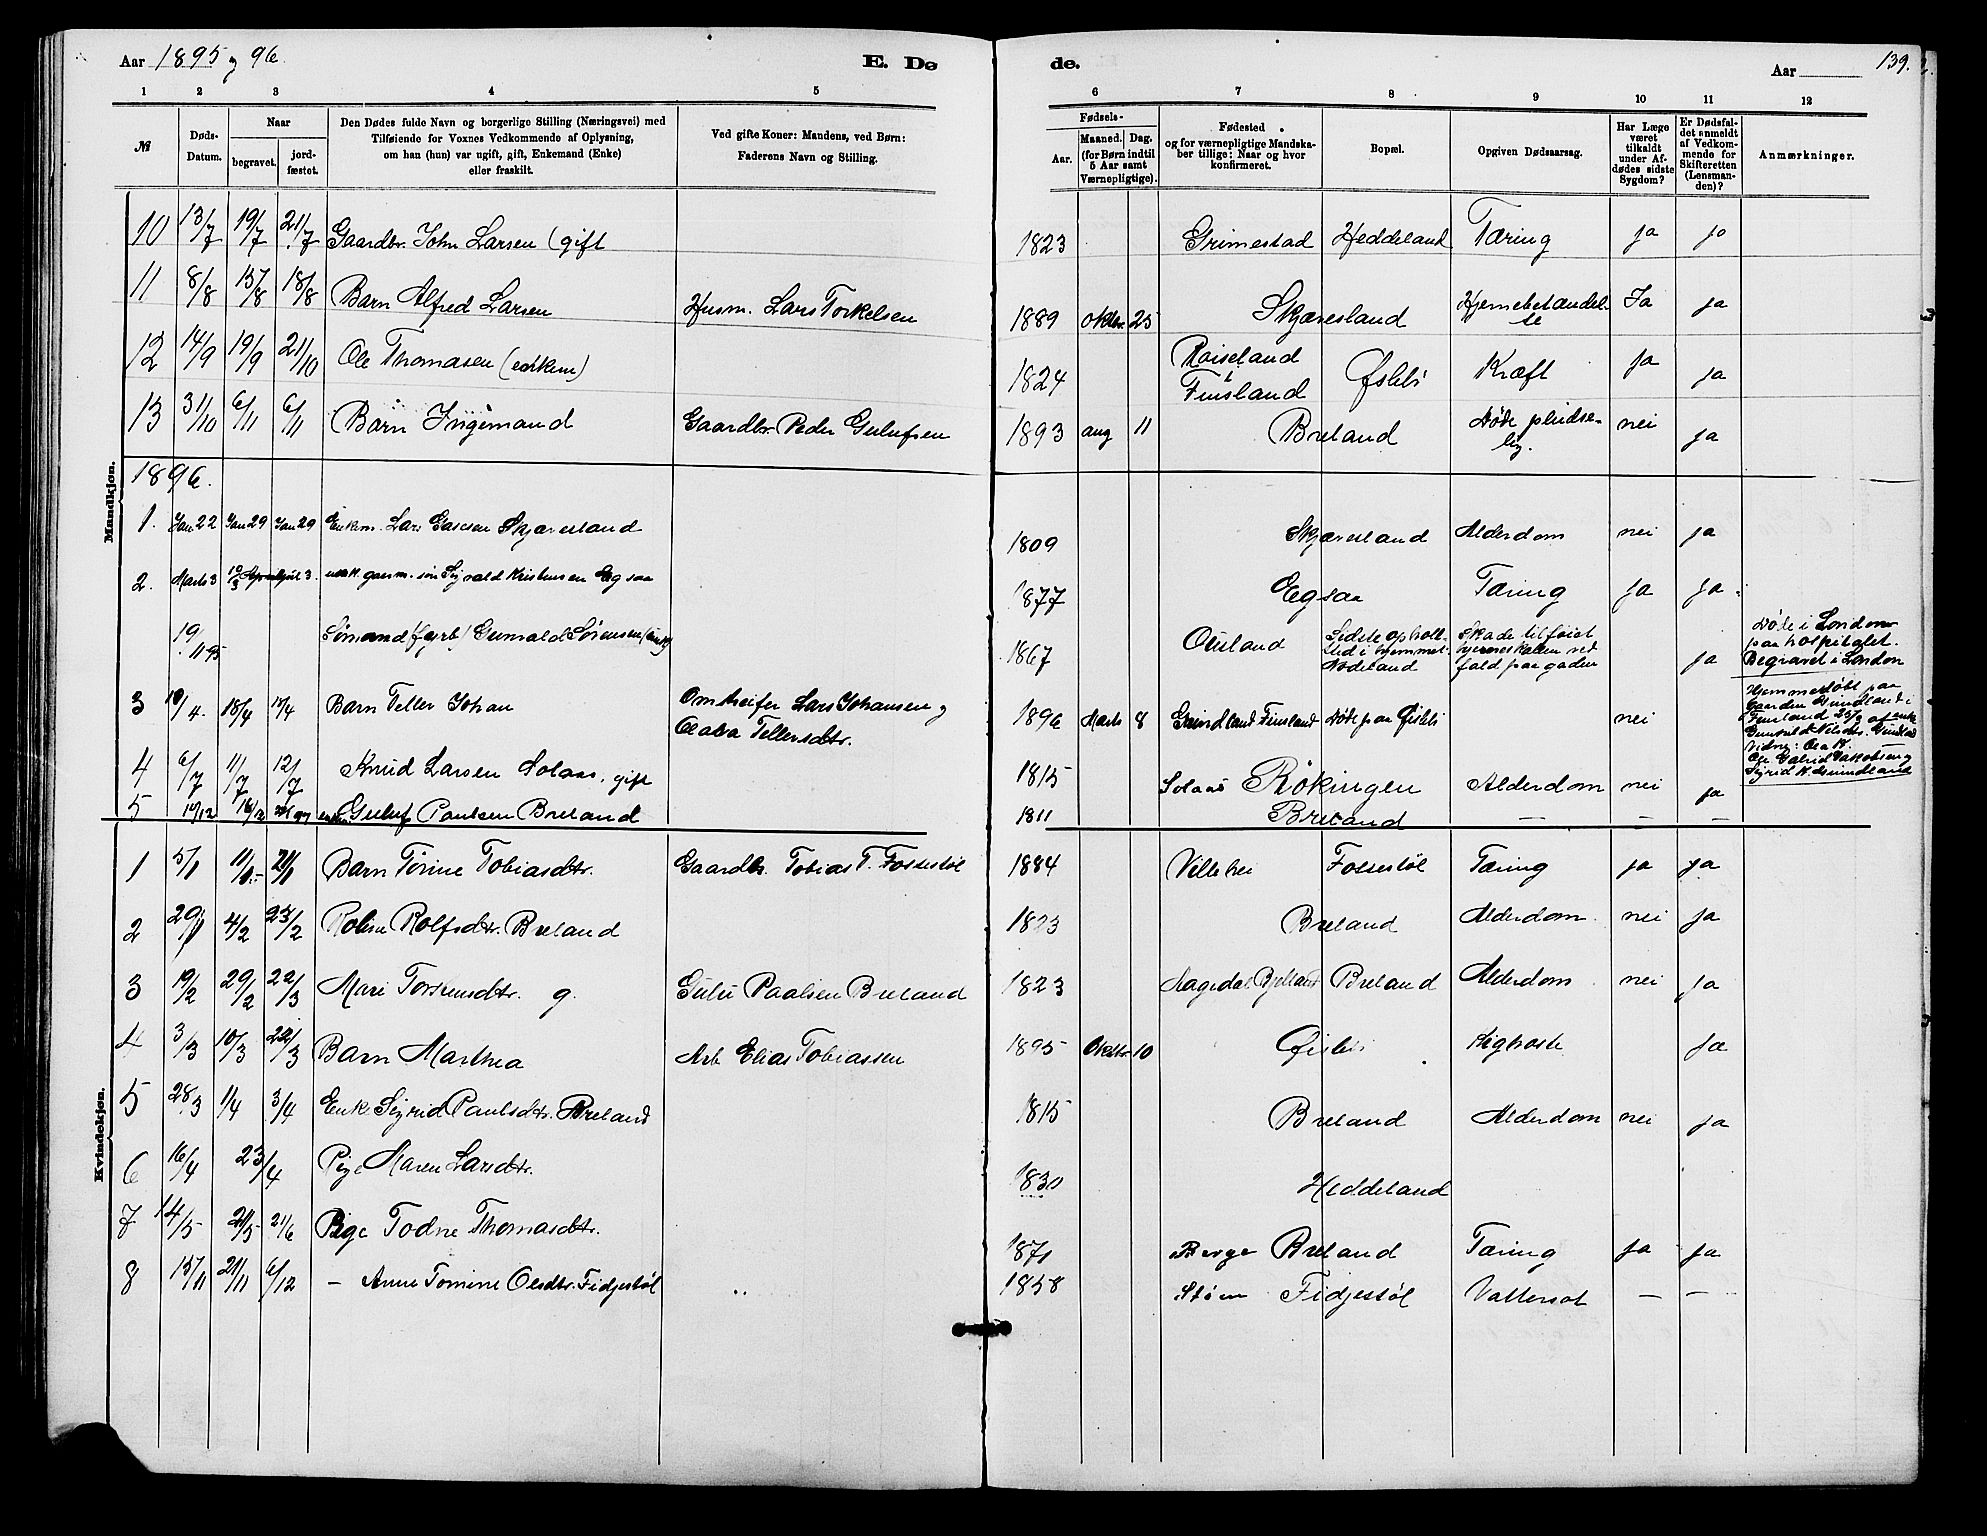 Aar 1895 og 96.
E. Døde.
Aar
139.
1 2 3 4 5 6 7 8 9 10 11 12
№
Døds-Datum.
Naar
begravet.
jordfæstet.
Den Dødes fulde Navn og borgerlige Stilling (Næringsvei) med
Tilføiende for Voxnes Vedkommende af Oplysning,
om han (hun) var ugift, gift, Enkemand (Enke)
eller fraskilt.
Ved gifte Koner: Mandens, ved Børn:
Faderens Navn og Stilling.
Fødsels-
Aar.
Maaned. Dag.
(for Børn indtil
5 Aar samt
Værnepligtige).
Fødested
og for værnepligtige Mandska-
ber tillige: Naar og hvor
konfirmeret.
Bopæl.
Opgiven Dødsaarsag.
Har Læge
været
tilkaldt
under Af-
dødes sidste
Sygdom?
Er Dødsfal-
det anmeldt
af Vedkom-
mende for
Skifteretten
(Lensman-
den)?
Anmærkninger.
Mandkjøn.
10 13/7 19/7 21/7 Gaardbr. John Larsen (gift 1823 Grimestad Heddeland Tæring ja ja
11 8/8 15/8 18/8 Barn Alfred Larsen Husm. Lars Torkelsen 1889 oktbr. 25 Skjæresland Hjernebetændel-
se Ja ja
12 14/9 19/9 21/10 Ole Thomasen (enkem) 1824 Røiseland
i Finsland Øslebø Kræft ja ja
13 31/10 6/11 6/11 Barn Ingemand Gaardbr. Peder Gulufsen 1893 aug 11 Breland Døde pludse-
lig. nei ja
1896.
1. Jan 22 Jan 29 Jan 29 Enkm. Lars Skjæresland 1809 Skjæresland Alderdom nei ja
2. Marts 3 April 3. gaarm. søn Sigvald Kristensen Egsaa 1877 Egsaa Tæring ja ja
19/11 95 Sømand (fyrb) Gunvald Sørensen 1867 Ouland Sidste ophold-
sted i hjemmet
Nodeland Skade tilføiet
hjerneskallen ved
fald paa gaden ja Døde i London
paa hospitalet.
Begravet i London
3 18/4 Barn Teller Johan Lars Johansen og
Tellersdtr. 1896 Marts 8 Finsland Døde paa Øislebø nei Hjemmedøbt paa
Gaarden i
Finsland
4 6/7 11/7 12/7 Knud Larsen Solaas, gift 1815 Solaas Røkingen Alderdom nei ja
5 14/12 Guluf Paulsen Breland 1811 Breland — — —
Kvindekjøn.
1 5/1 11/1 21/1 Barn Tørine Tobiasdtr. Gaardbr. Tobias T. Fossestøl 1884 Fossestøl Tæring ja ja
2 29/1 4/2 25/2 Roline Rolfsdtr. Breland 1823 Breland Alderdom nei ja
3 19/2 29/2 22/3 Mari g. Gulu Paalsen Breland 1823 Bjelland Breland Alderdom nei ja
4 3/3 10/3 22/3 Barn Marthea Arb Elias Tobiassen 1895 Oktbr 10 Øislebø Kighoste ja
5 28/3 1/4 3/4 Enk. Sigrid Paulsdtr. Breland 1815 Breland Alderdom nei ja
6 16/4 23/4 Pige Maren Larsdtr. 1830 Heddeland
7 14/5 21/5 21/6 Pige Todne Thomasdtr. 1871 Berge Breland Tæring ja ja
8 15/11 21/11 6/12 — Anne Tomine Olsdtr. Fidjestøl 1858 Støen Fidjestøl Vattersot — —